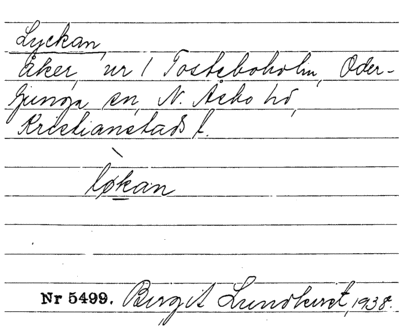 Lyckan,
Åker, nr 1 Tosteboholm, Oder-
ljunga sn, N. Åsbo hd,
Kristianstads l.
lykan
Nr 5499. Birgit Lundkvist, 1938.